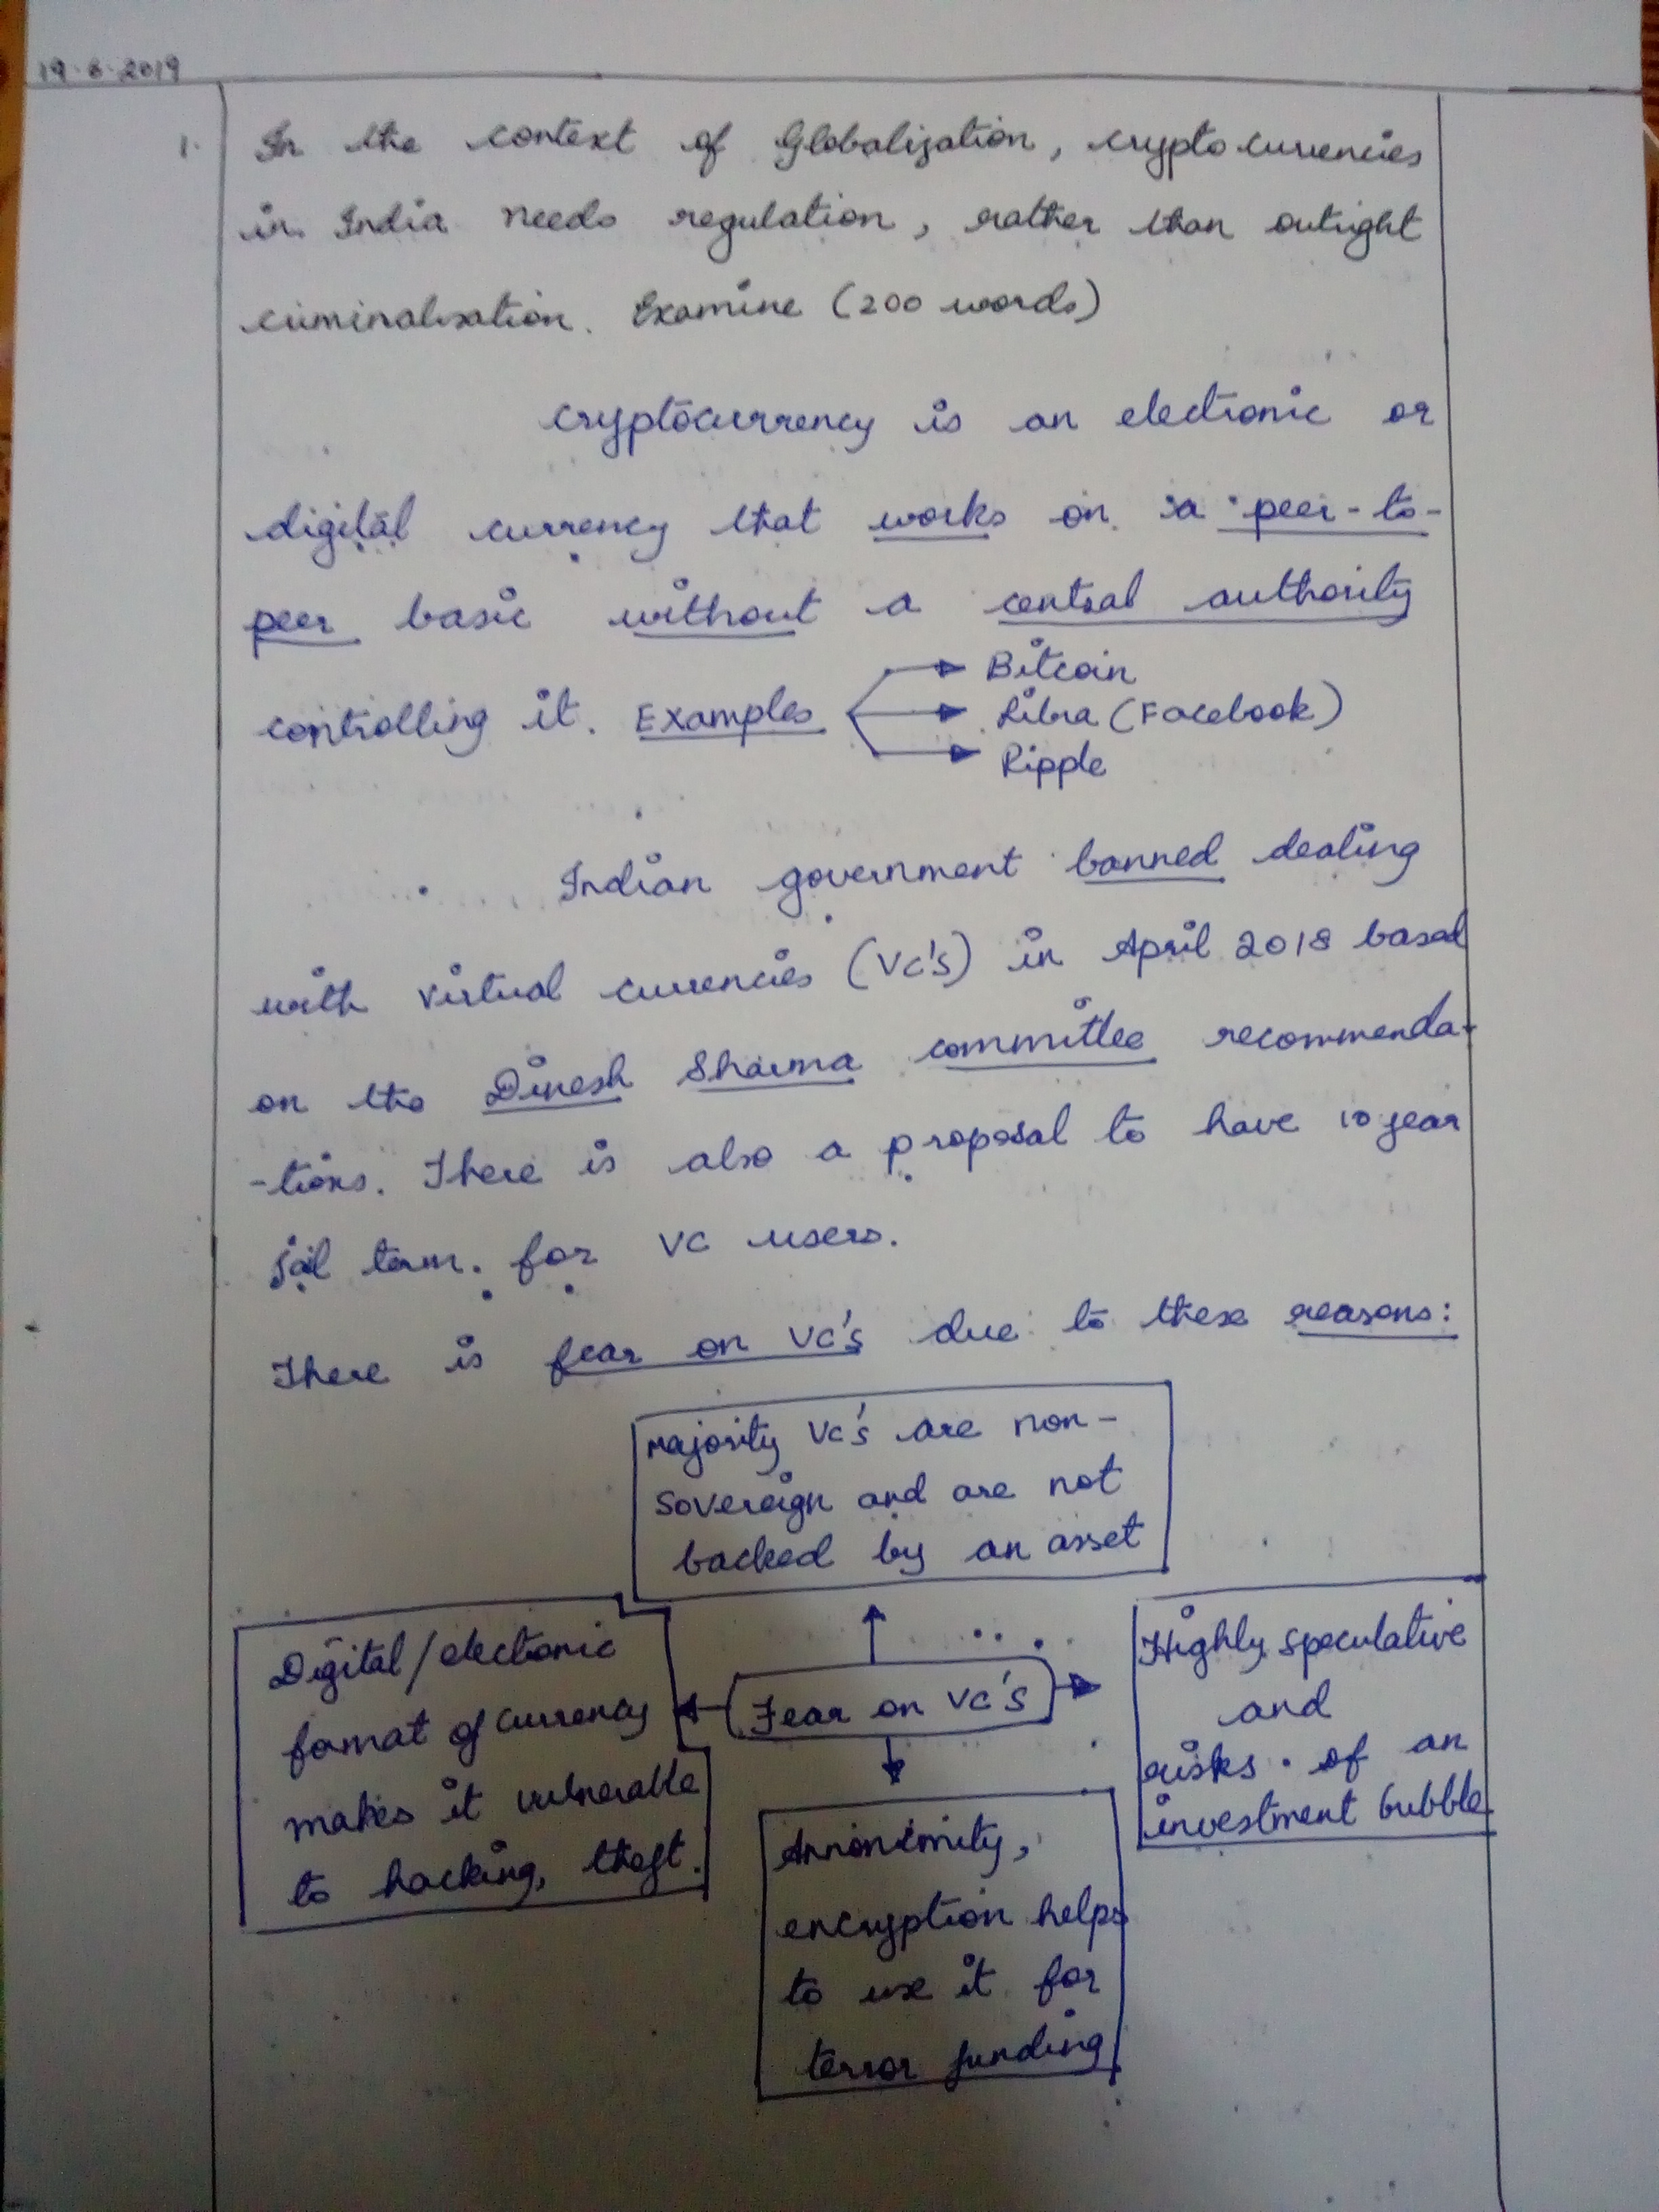 19.6.2019
1. In the context of Globalization, cryptocurrencies
in India needs regulation, rather than outright
criminalisation. Examine (200 words)
cryptocurrency is an electronic or
digital currency that works on a peer-to-
peer basic without a central authority
controlling it. Examples
Bitcoin
Libra (Facebook)
Ripple
Indian government banned dealing
with virtual currencies (VC's) in April 2018 based
on the Dinesh Sharma committee recommenda-
-tions. There is also a proposal to have 10 year
jail term. for VC users.
There is fear on VC's due to these reasons:
majority VC's are non-
sovereign and are not
backed by an asset
Digital/electronic
format of currency
makes it vulnerable
to hacking, theft.
Fear on VC's
Highly speculative
and
risks of an
investment bubble
Annonimity,
encryption helps
to use it for
terror funding